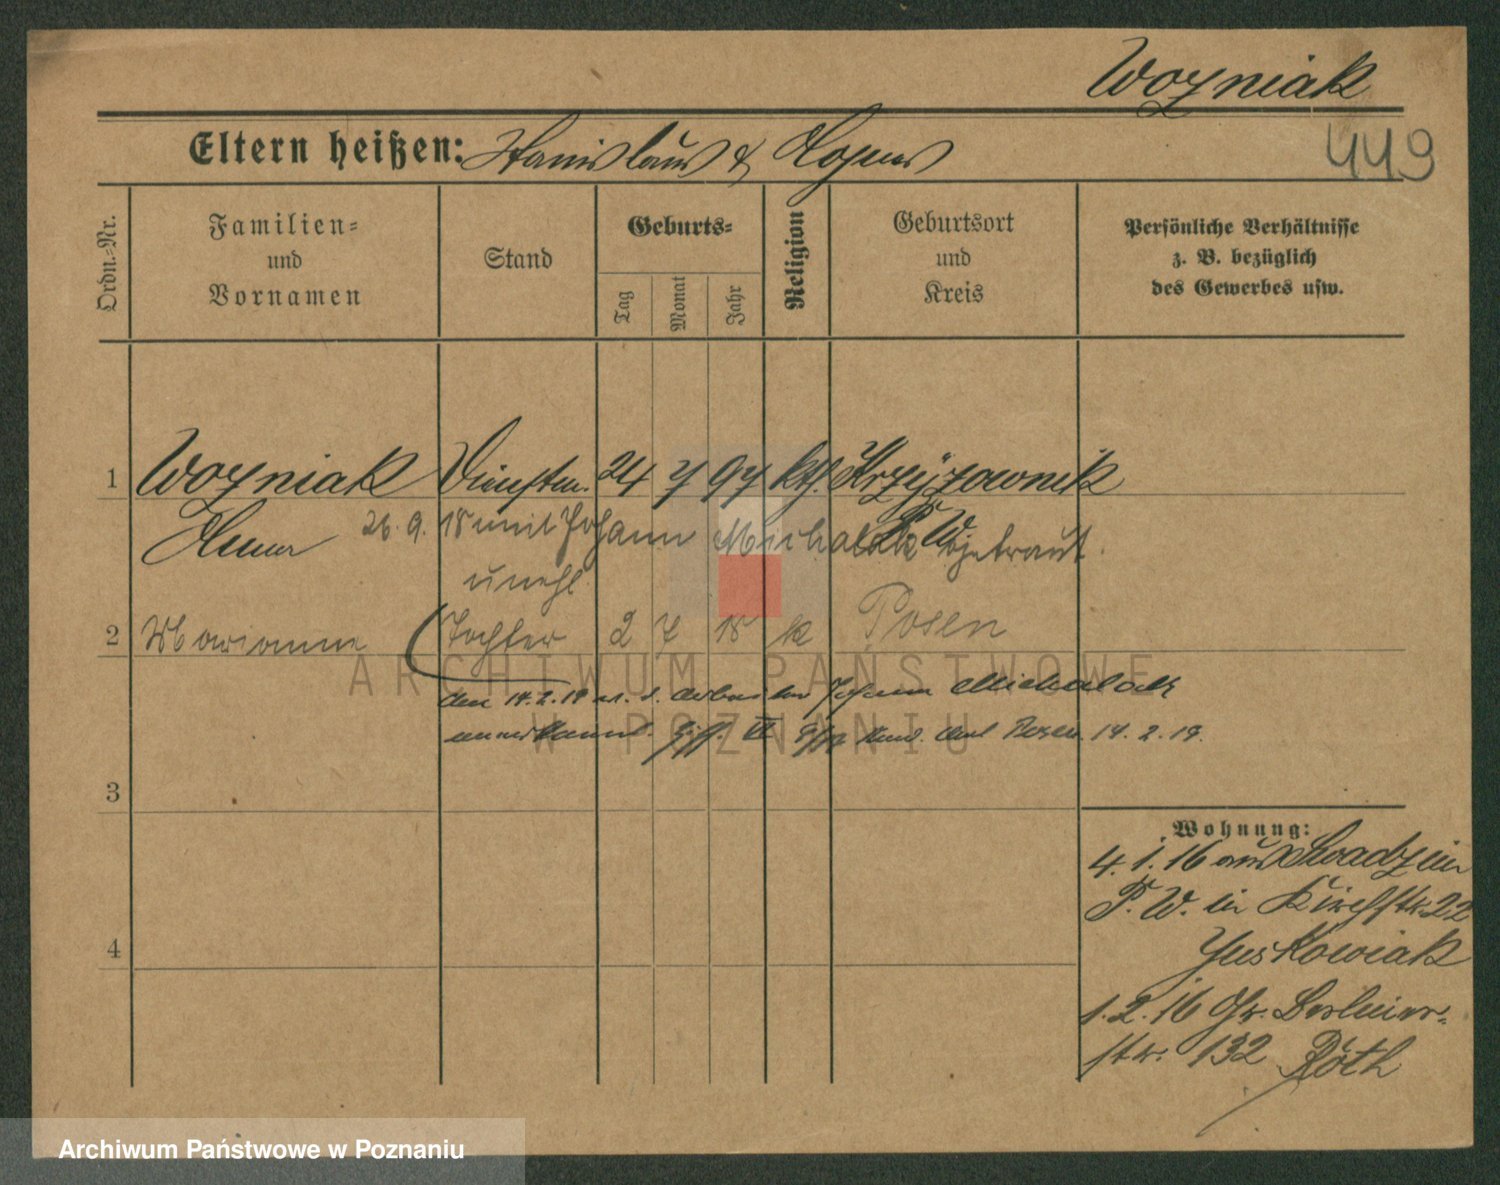 Wozniak
Eltern heißen: Stanislaus &
449
Ordn.-Nr.
Familien-
und
Vornamen
Stand
Geburts-
Tag
Monat
Jahr
Religion
Geburtsort
und
Kreis
Persönliche Verhältnisse
z. B. bezüglich
des Gewerbes usw.
1 Wozniak Dienstm. 24 7 97 kth. Krzyżownik
P. W.
26. 9. 18 mit Johann Michalak getraut.
unehl
2 Marianna Tochter 2 7 18 k Posen
den 14.2.19 v. d. Arbeiter Johann Michalak
anerkannt. Posen 14. 2. 19.
3
4
Wohnung:
4. 1. 16 aus Swadzim
P. W. in Kirchstr. 22
Juskowiak
1. 2. 16 Gr. Berliner-
str. 132 Röth
ARCHIWUM PAŃSTWOWE
W POZNANIU
Archiwum Państwowe w Poznaniu